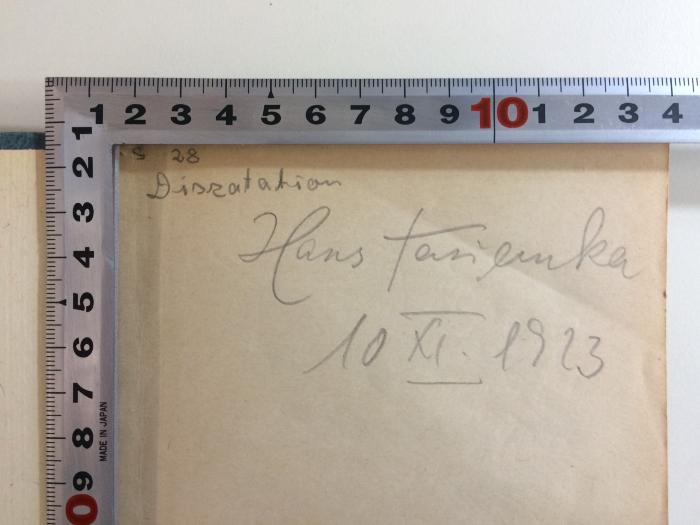 1 2 3 4 5 6 7 8 9 10 1 2 3 4
1 2 3 4 5 6 7 8 9 0
MADE IN JAPAN
s 28
Disszatation
Hans Tasiemka
10 XI. 1923